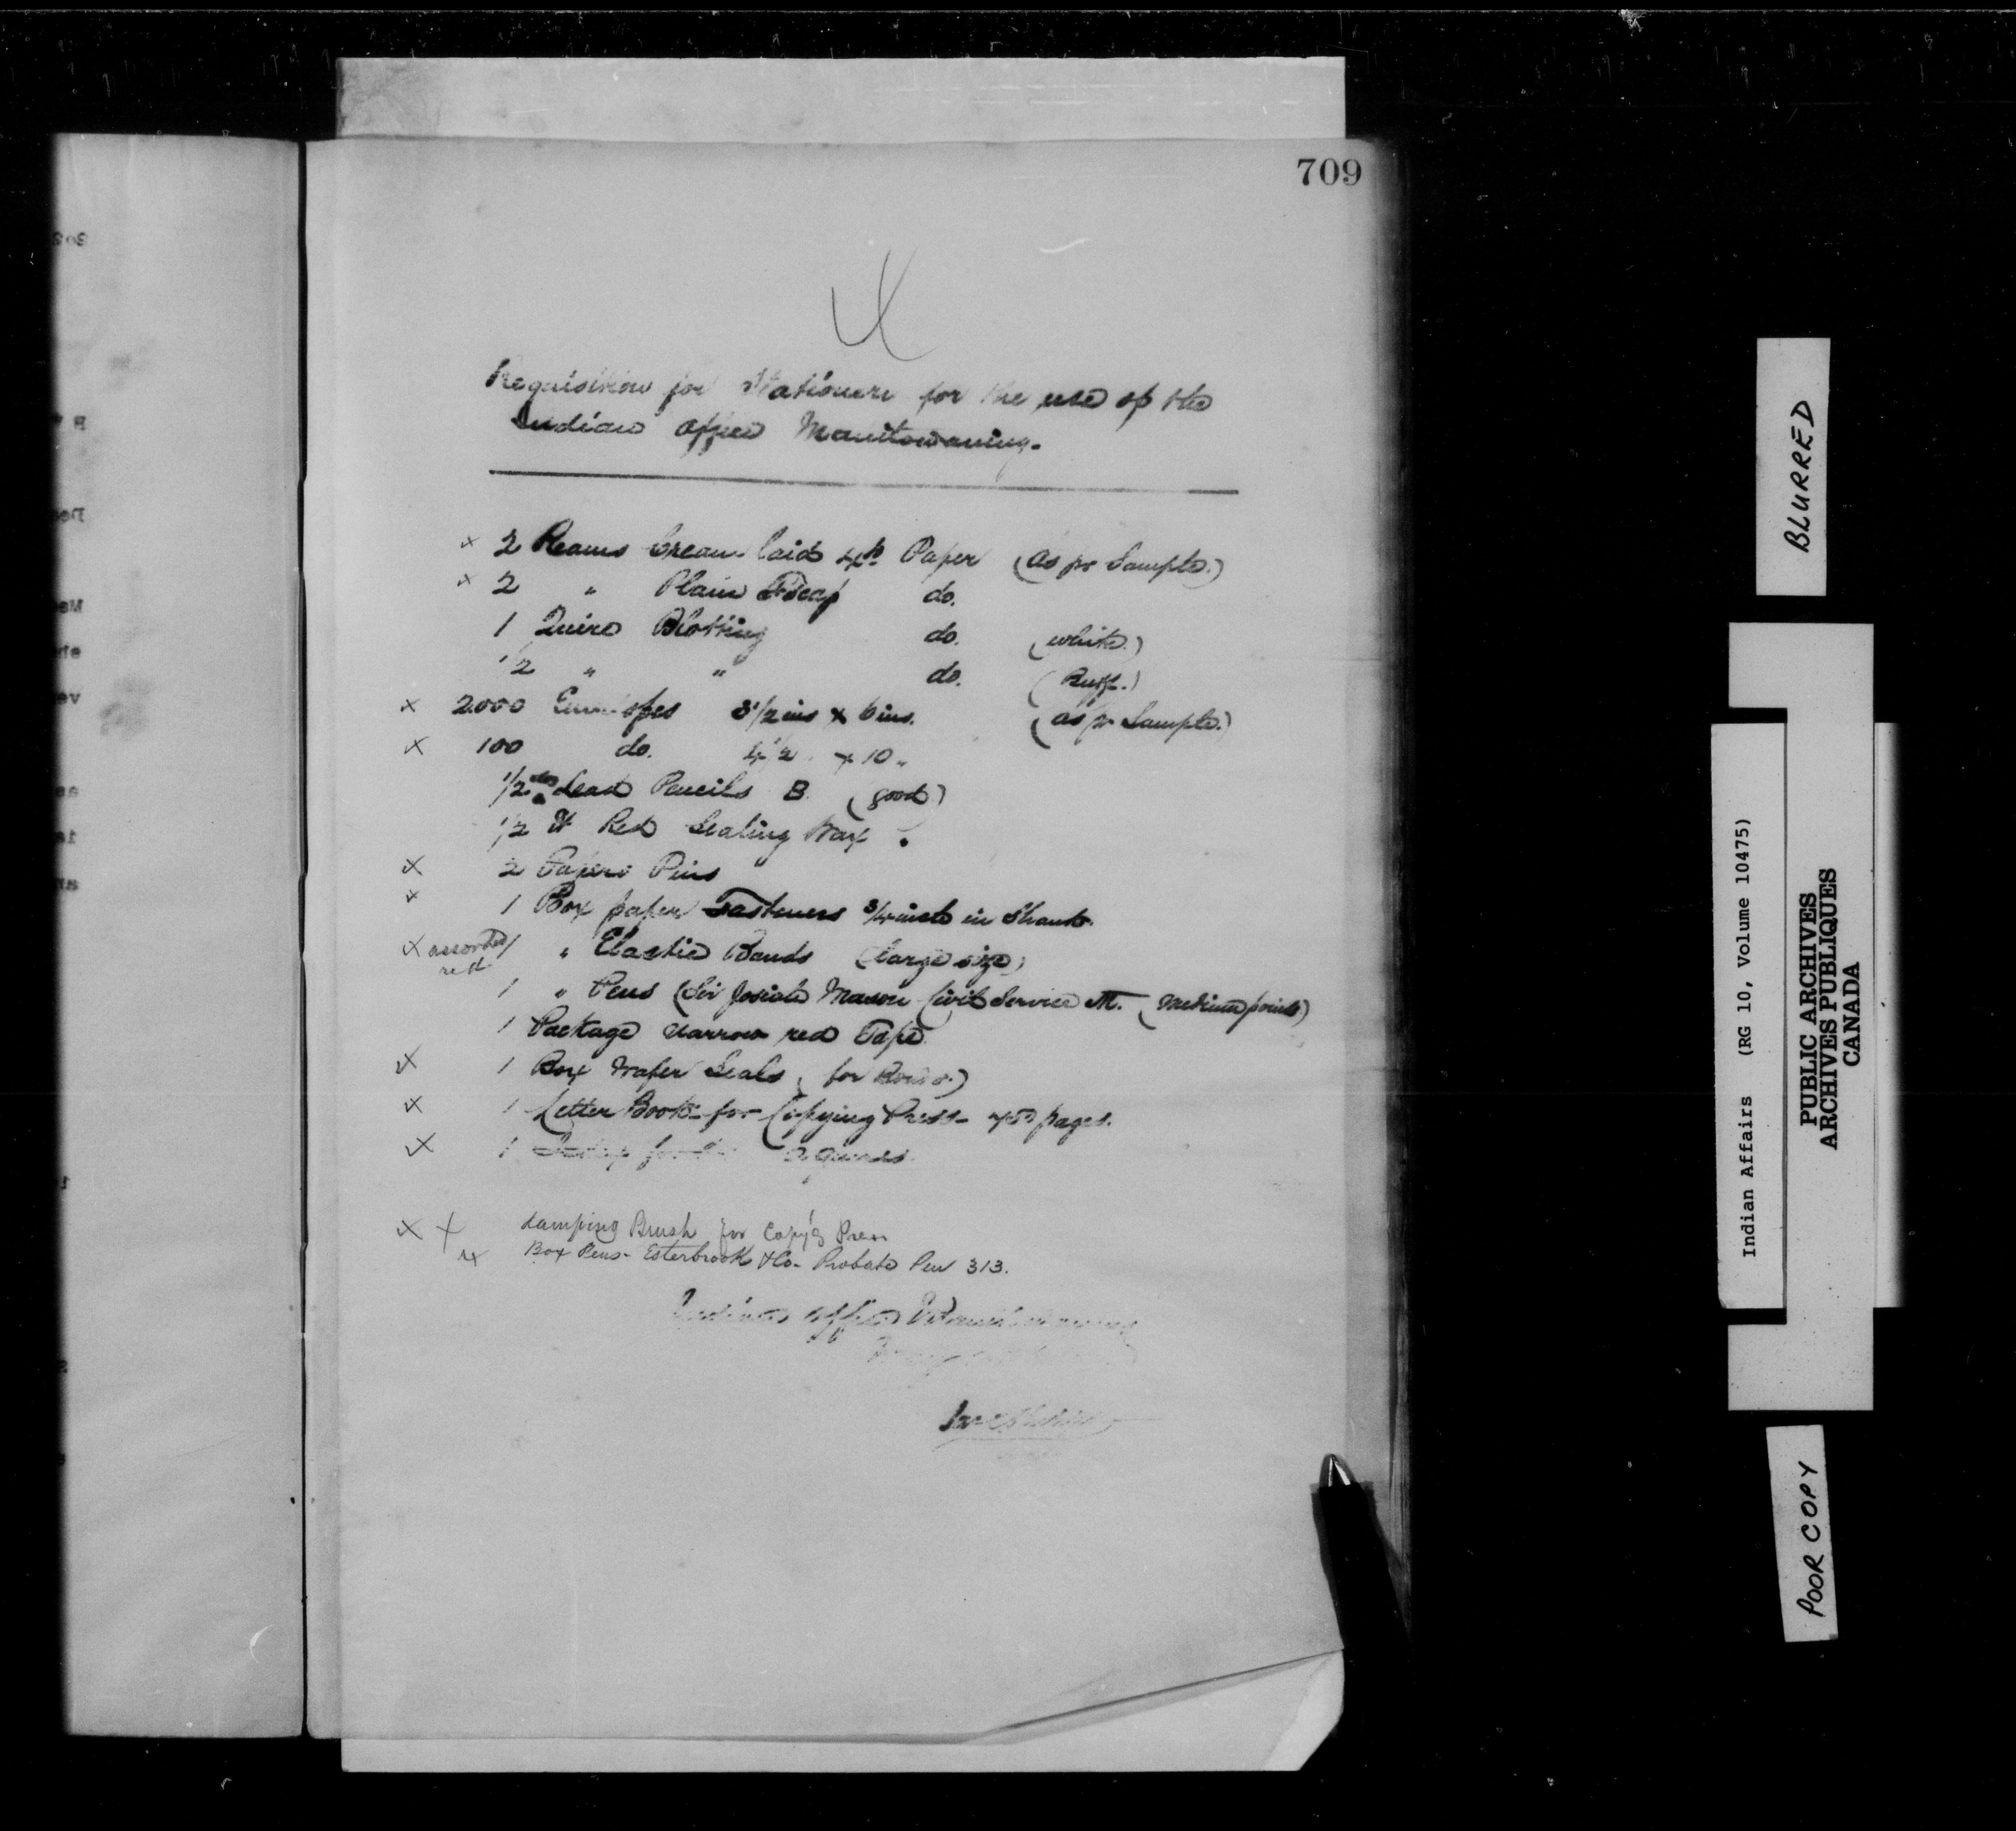 709
Requisition for Stationery for the use of the
Indian Office Manitowaning.
x 2 Reams Cream laid 4to Paper (as pr Sample.)
x 2 " Plain F'scap do.
1 Quire Blotting do. (white.)
1/2 " " do. (Buff.)
x 2000 Envelopes 3 1/2 ins x 6 ins. (as pr Sample.)
x 100 do. 4 1/2 " x 10 "
1/2 doz Lead Pencils B. (good)
1/2 lb Red Sealing Wax.
x 2 Papers Pins
x 1 Box paper Fasteners 3/4 inch in Shank.
x assorted 1 " Elastic Bands (large size)
1 " Pens (Sir Josiah Mason Civil Service M. (Medium points)
1 Package narrow red Tape
x 1 Box Wafer Seals (for Bonds.)
x 1 Letter Book for Copying Press
pages.
x 1 quires
x x Damping Brush for Copy'g Press
x Box Pens - Esterbrook & Co - Probate Pen 313.
Indian Office Manitowaning
BLURRED
Indian Affairs (RG 10, Volume 10475)
PUBLIC ARCHIVES
ARCHIVES PUBLIQUES
CANADA
POOR COPY